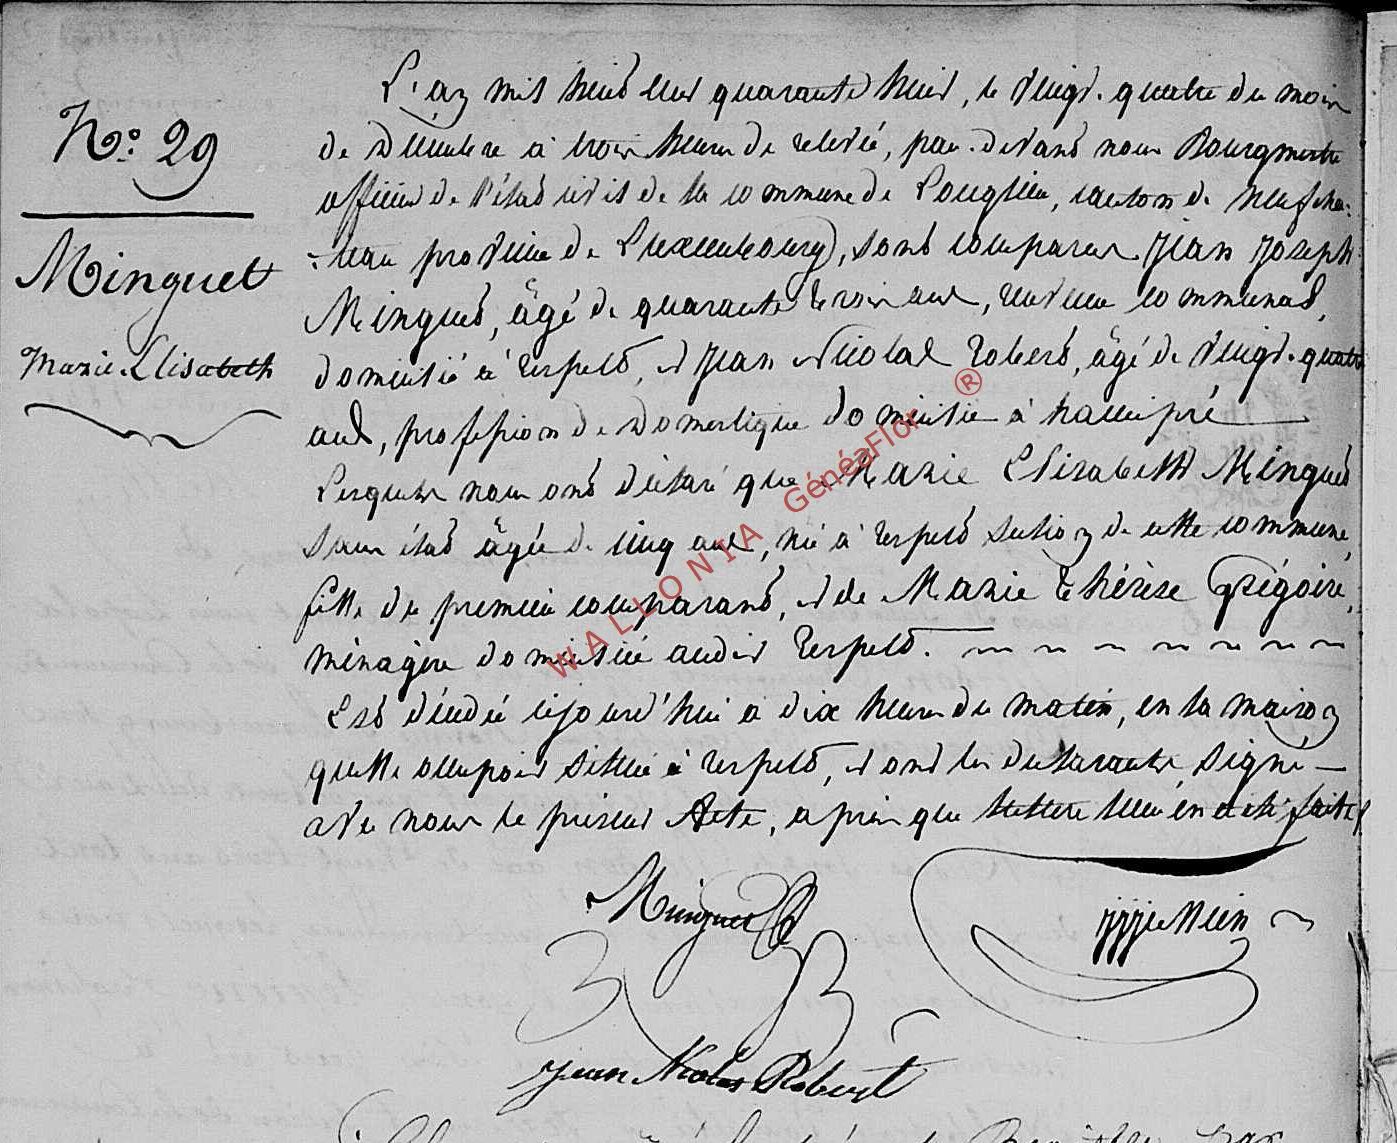 N.o 29
Minguet
Marie Elisabeth
L'an mil huit cent quarante huit, le vingt-quatre du mois
de Décembre à trois heures de relevée, par-devant nous Bourgmestre
officier de l'état civil de la commune de Longlier, canton de Neufcha-
-teau province de Luxembourg, sont comparus Jean Joseph
Minguet, âgé de quarante trois ans, receveur communal,
domicilié à Respelt, et Jean Nicolas Robert, âgé de vingt-quatre
ans, profession de Domestique domicilié à hamipré
Lesquels nous ont déclaré que Marie Elisabeth Minguet
sans état âgée de cinq ans, né à Respelt section de cette commune,
fille du premier comparant, et de Marie Thérèse Grégoire,
ménagère domiciliée audit Respelt.
Est décédé cejourd'hui à dix heures du matin, en la maison
quelle occupait située à Respelt, et ont les déclarants signé
avec nous le présent Acte, après que lecture leur en a été faite
Minguet
Jean Nicolas Robert
WALLONIA GénéaFlor ®